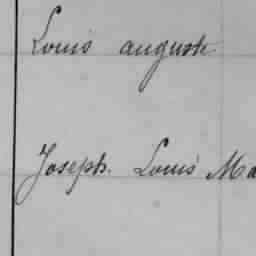 Louis auguste
Joseph. Louis Ma